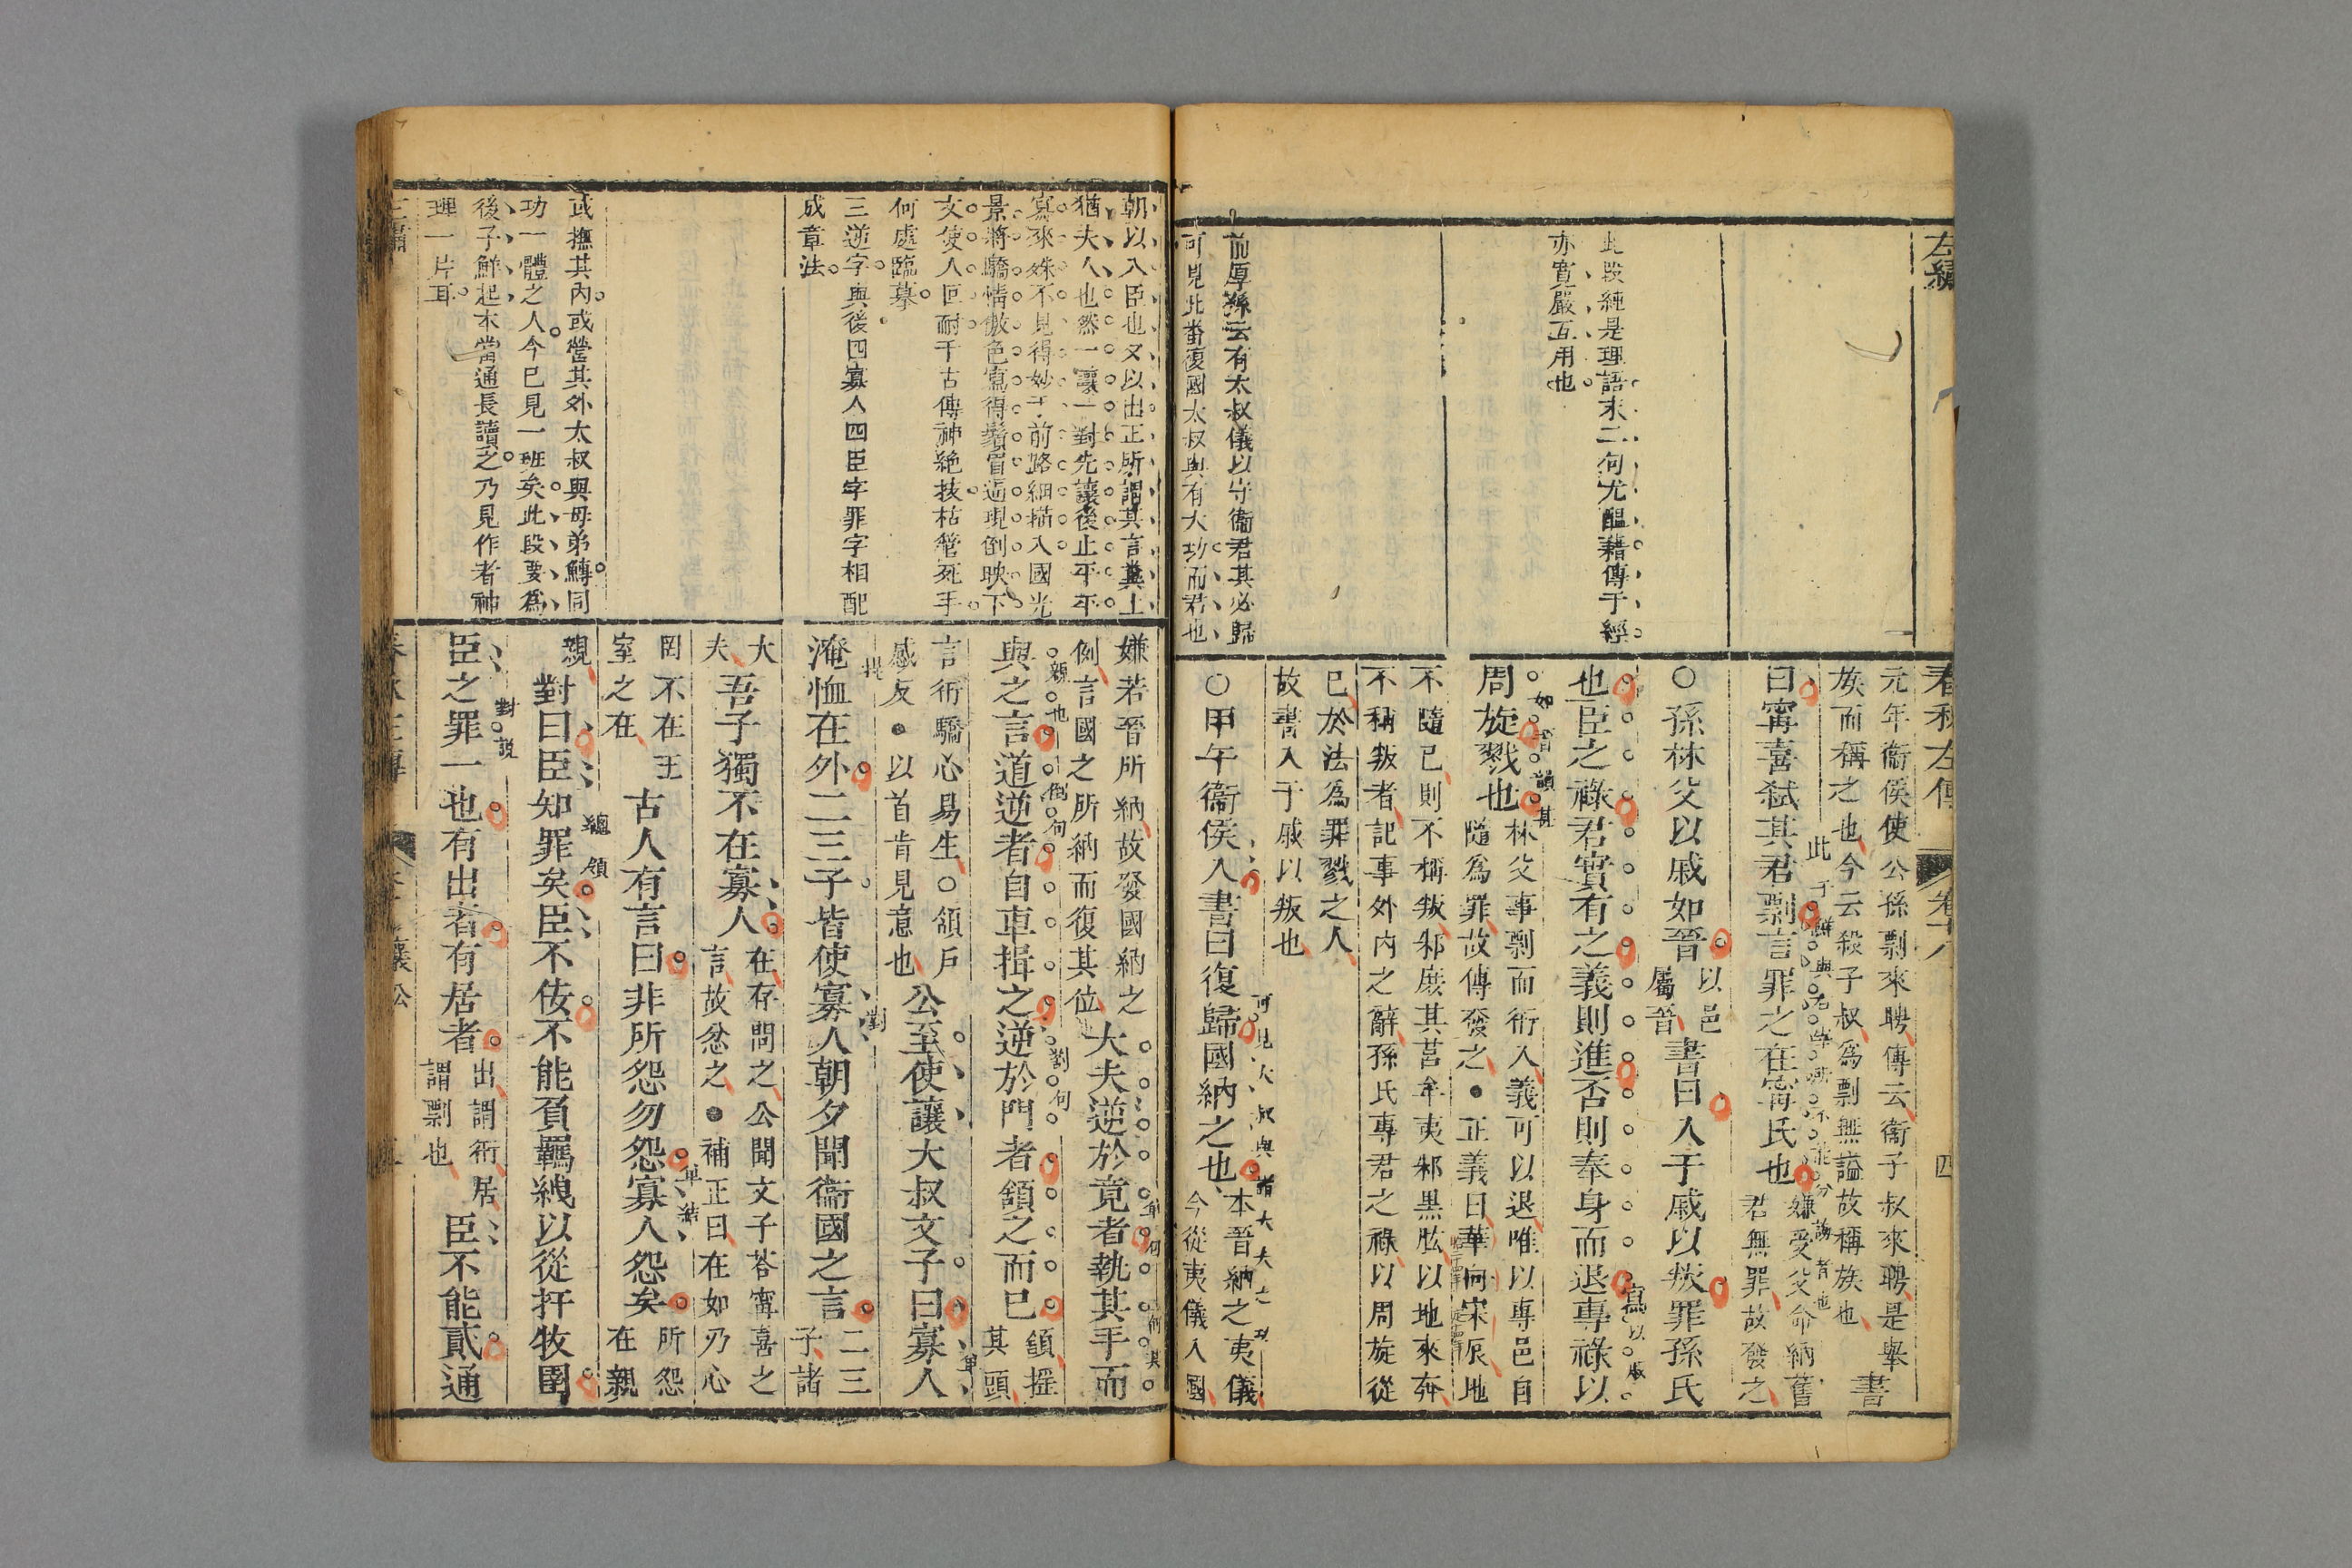 左繡
此段純是理語末二句尤醞藉傳于經
亦寬嚴互用也
前厚孫云有太叔儀以守衞君其必歸
可見此番復國太叔與有大功而君也
春秋左傳
卷十八
四
元年衞侯使公孫剽來聘傳云衞子叔來聘是舉
族而稱之也今云殺子叔爲剽無謚故稱族也
書
曰甯喜弑其君剽言罪之在甯氏也
嫌受父命納舊
君無罪故發之
○孫林父以戚如晉
以邑
屬晉
書曰入于戚以叛罪孫氏
也臣之祿君實有之義則進否則奉身而退專祿以
周旋戮也
林父事剽而衎入義可以退唯以專邑自
隨爲罪故傳發之●正義曰華向宋辰地
不隨己則不稱叛邾庶其莒牟夷邾黑肱以地來奔
不稱叛者記事外内之辭孫氏專君之祿以周旋從
已於法爲罪戮之人
故書入于戚以叛也
○甲午衞侯入書曰復歸國納之也
本晉納之夷儀
今從夷儀入國
可見大叔與諸大夫之功
朝以入臣也又以出正所謂其言糞土
猶夫人也然一讓一對先讓後止平平
寫來殊不見得妙于前路細描入國光
景將驕情傲色寫得鬚眉逼現倒映下
文使人叵耐千古傳神絶技枯管死手
何處臨摹
三逆字與後四寡人四臣字罪字相配
成章法
或撫其內或營其外太叔與母弟鱄同
功一體之人今已見一班矣此段要爲
後子鮮起本當通長讀之乃見作者神
理一片耳
嫌若晉所納故發國納之
例言國之所納而復其位
大夫逆於竟者執其手而
與之言道逆者自車揖之逆於門者頷之而已
頷搖
其頭
言衎驕心易生○頷戶
感反●以首肯見意也
公至使讓大叔文子曰寡人
淹恤在外二三子皆使寡人朝夕聞衞國之言
二三
子諸
大
夫
吾子獨不在寡人
在存問之公聞文子荅甯喜之
言故忿之●補正曰在如乃心
罔不在王
室之在
古人有言曰非所怨勿怨寡人怨矣
所怨
在親
親
對曰臣知罪矣臣不佞不能負羈絏以從扞牧圉
臣之罪一也有出者有居者
出謂衎居
謂剽也
臣不能貳通